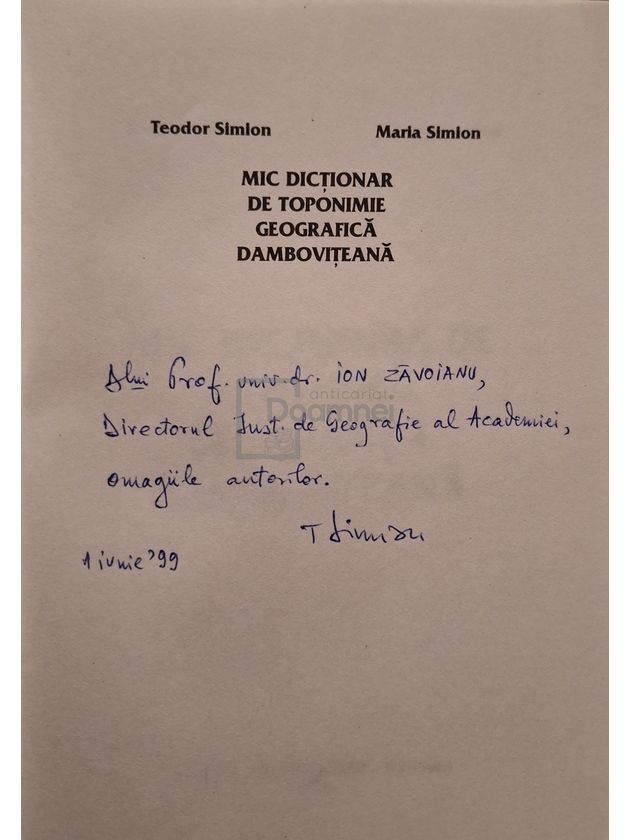 Teodor Simion Maria Simion
MIC DICȚIONAR
DE TOPONIMIE
GEOGRAFICĂ
DAMBOVIȚEANĂ
Dlui Prof. univ. dr. ION ZĂVOIANU,
anticariat
Doamnei
Directorul Inst. de Geografie al Academiei,
omagiile autorilor.
T Simion
1 iunie '99